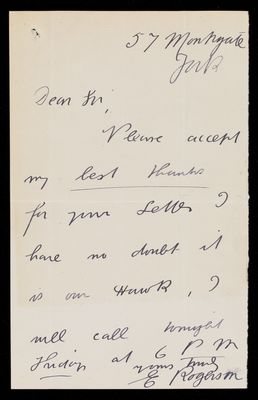 57 Monkgate
York
Dear Sir,
Please accept
my best thanks
for your Letter I
have no doubt it
is our Hawk, I
will call tonight
Friday at 6 P M
yours truly
E Rogerson